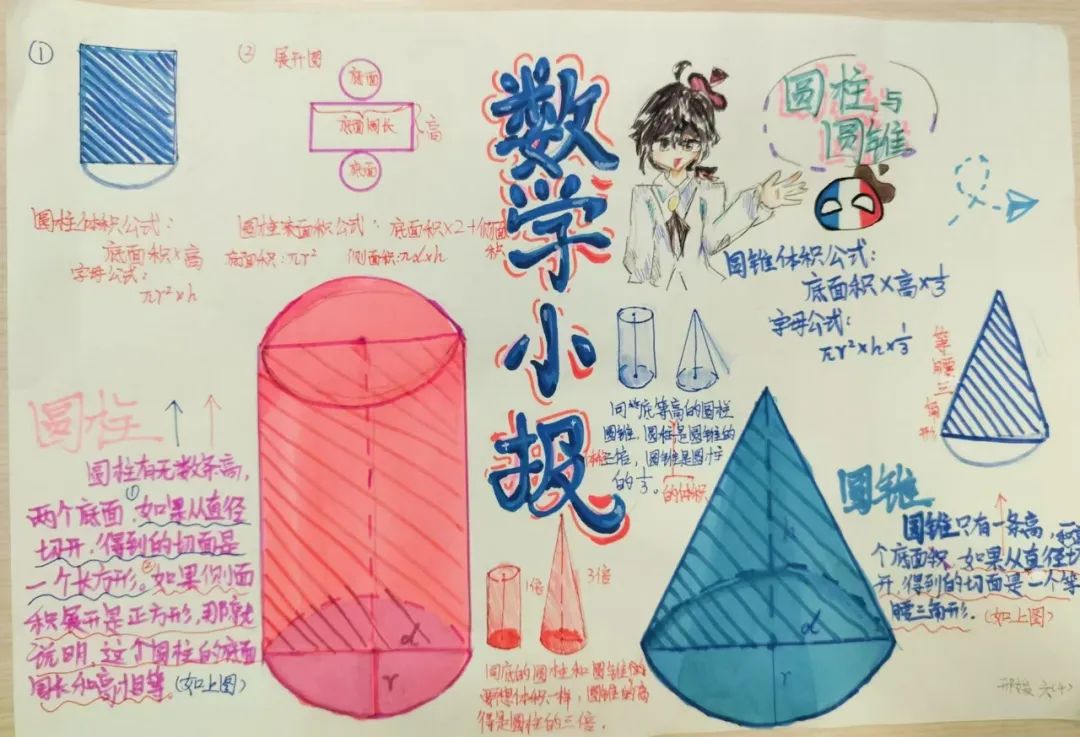 ①
② 展开图
底面
底面周长
高
底面
圆柱体积公式：
底面积×高
字母公式：
πr²×h
圆柱表面积公式：底面积×2+侧面积
底面积：πr² 侧面积：πd×h
数学小报
圆柱与
圆锥
圆锥体积公式：
底面积×高×1/3
字母公式：
πr²×h×1/3
等腰三角形
圆柱
圆柱有无数条高，
两个底面，①如果从直径
切开，得到的切面是
一个长方形。②如果侧面
积展开是正方形，那就
说明，这个圆柱的底面
周长和高相等。（如上图）
d
r
同等底等高的圆柱
圆锥，圆柱是圆锥的
体积三倍，圆锥是圆柱
的1/3。的体积
1倍
3倍
同底的圆柱和圆锥
要想体积一样，圆锥的高
得是圆柱的三倍。
h
d
r
圆锥
圆锥只有一条高，一
个底面积，如果从直径切
开，得到的切面是一个等
腰三角形。（如上图）
六(4)